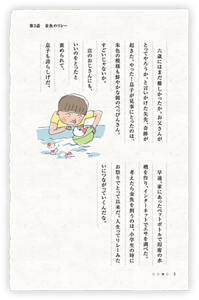 第3話 金魚のリレー
六歳にはまだ難しかったか。お父さんが
とってやろうか、と言いかけた矢先、奇跡が
起きた。やった！息子が見事にとったのは、
朱色の模様も鮮やかな錦のべっぴんさん。
すごいじゃないか。
店のおじさんにも、
いいのをとったと
褒められて、
息子も誇らしげだ。
早速、家にあったペットボトルで即席の水
槽を作り、インターネットでエサを調べた。
考えたら金魚を飼うのは、小学生の時に
お祭りでとって以来だ。人生ってリレーみた
いにつながっていくんだな。